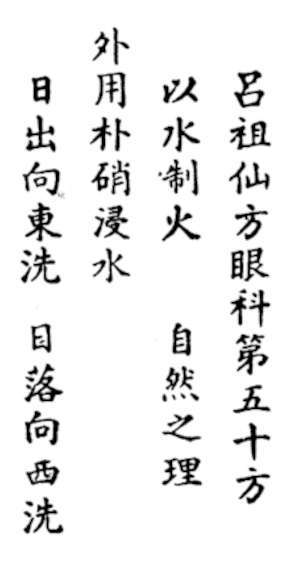 呂祖仙方眼科第五十方
以水制火　自然之理
外用朴硝浸水
日出向東洗　目落向西洗